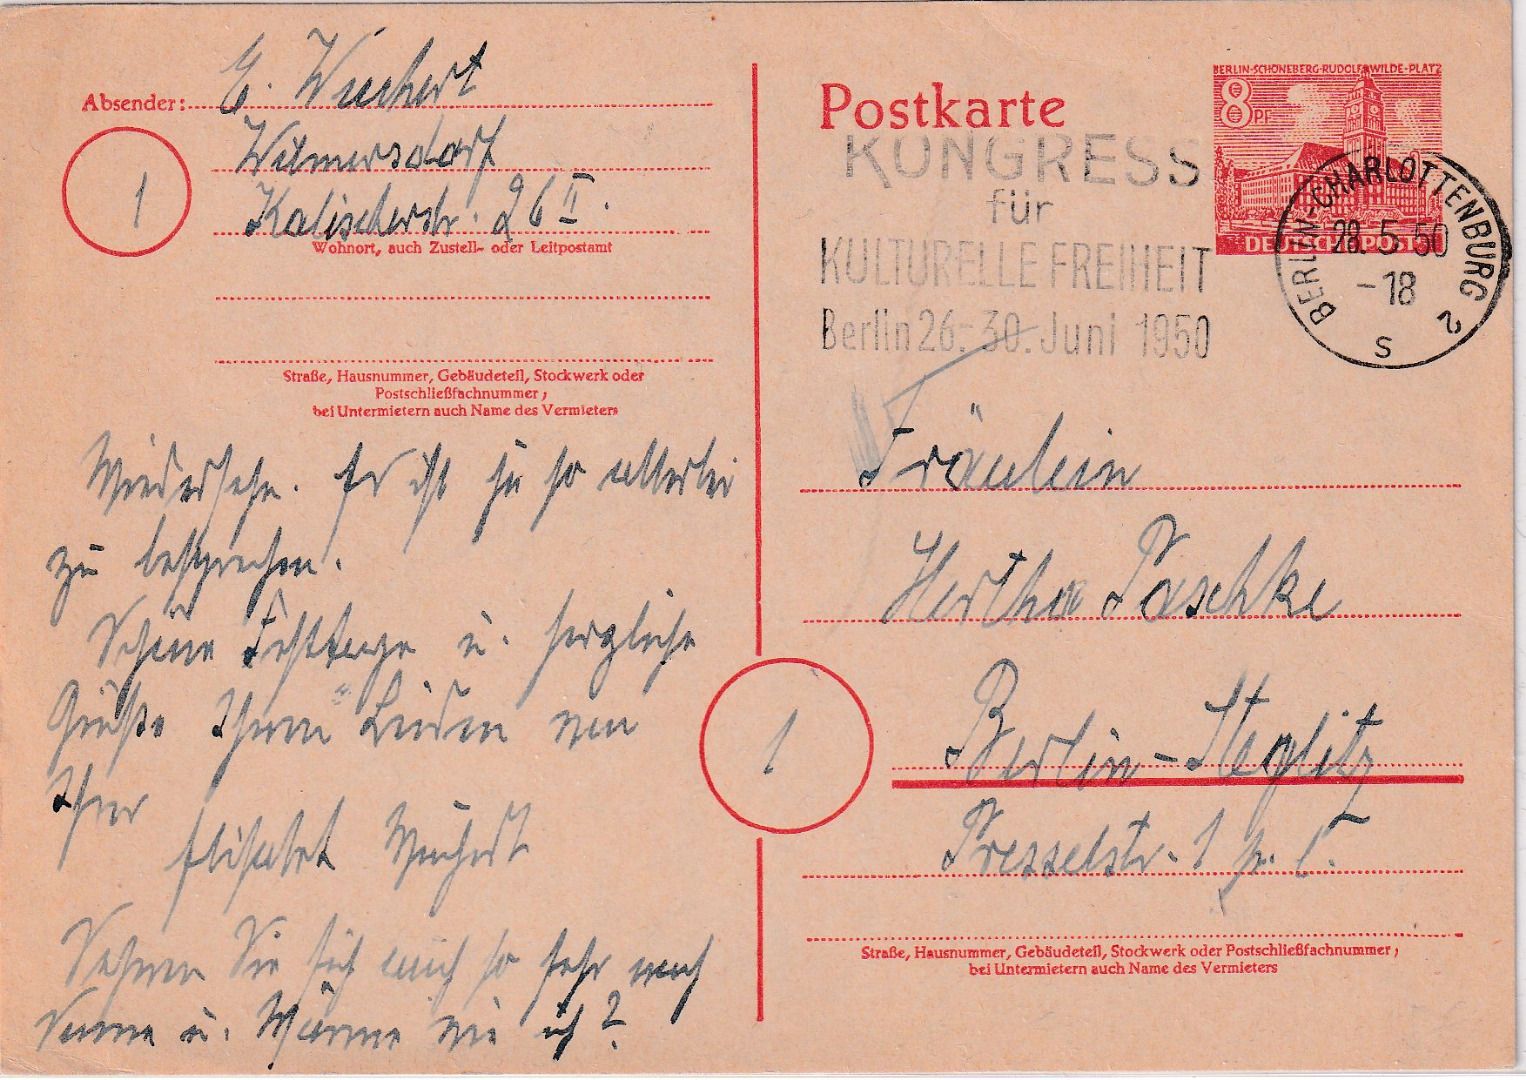 Absender: E. Wiechert
Wilmersdorf
1
Kalischerstr. 26 II.
Wohnort, auch Zustell- oder Leitpostamt
Straße, Hausnummer, Gebäudeteil, Stockwerk oder
Postschließfachnummer;
bei Untermietern auch Name des Vermieters
Wiedersehn. Es ist ja so allerlei
zu besprechen.
Schöne Festtage u. herzliche
Grüße Ihnen Beiden von
Ihrer
Elisabet Wiechert
Sehnen Sie sich auch so sehr nach
Sonne u. Wärme wie ich?
Postkarte
BERLIN-SCHÖNEBERG·RUDOLF-WILDE-PLATZ
8 PF
DEUTSCHE POST
KONGRESS
für
KULTURELLE FREIHEIT
Berlin 26.-30. Juni 1950
BERLIN-CHARLOTTENBURG 2
28.5.50
-18
s
Fräulein
Hertha Paschke
1
Berlin-Steglitz
Presselstr. 1 p. l.
Straße, Hausnummer, Gebäudeteil, Stockwerk oder Postschließfachnummer;
bei Untermietern auch Name des Vermieters